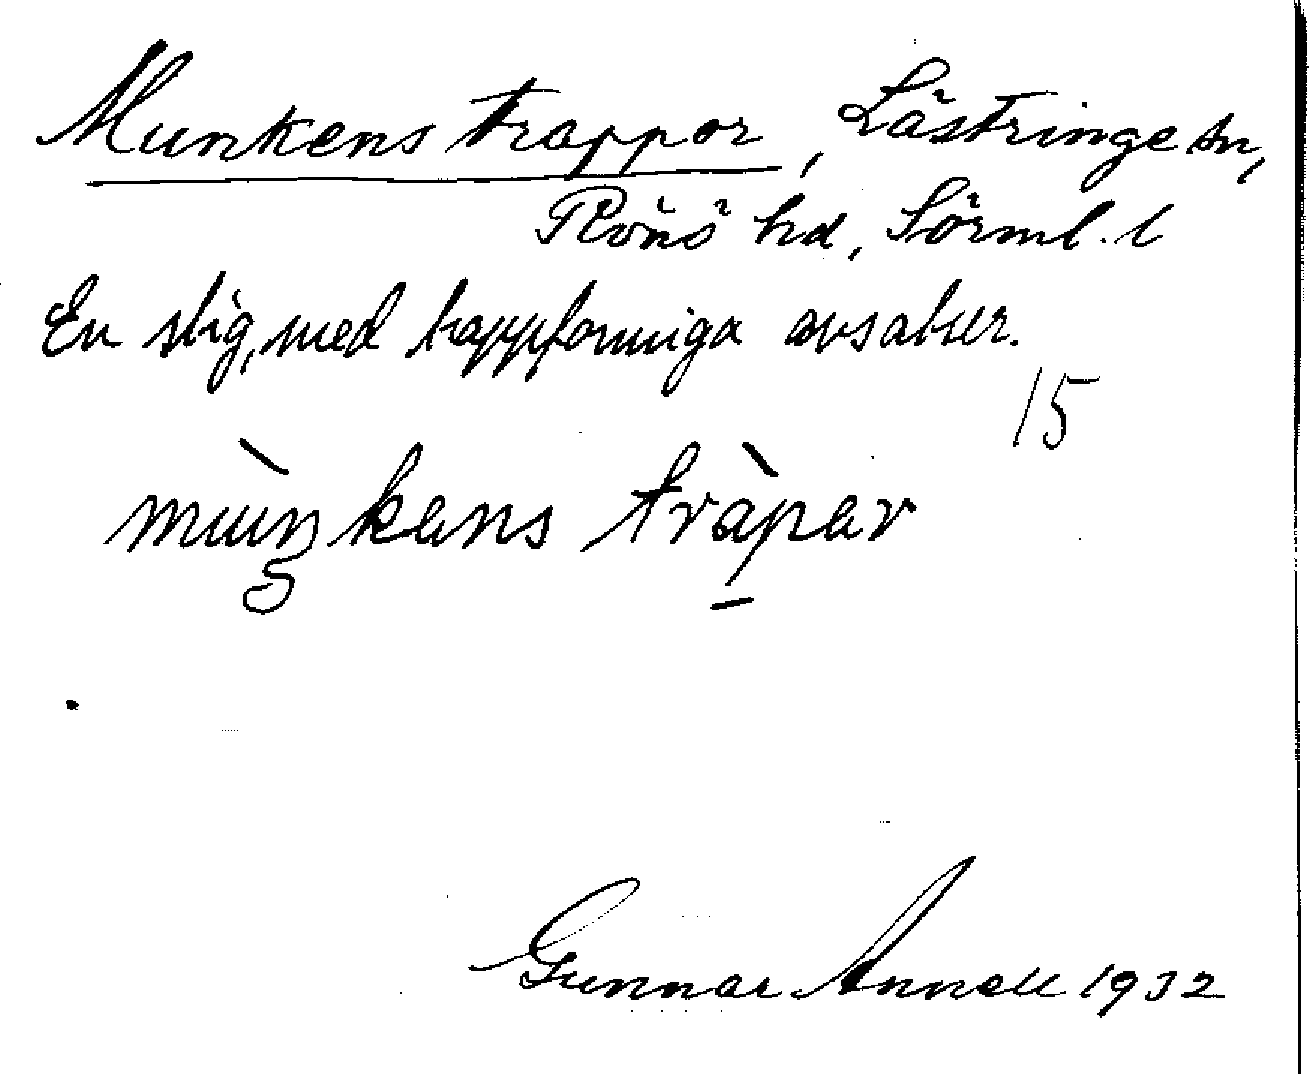 Munkens trappor, Lästringe sn,
Rönö hd, Sörml. l
En stig, med trappformiga avsatser.
15
mùŋkens tràpar
Gunnar Annell 1932